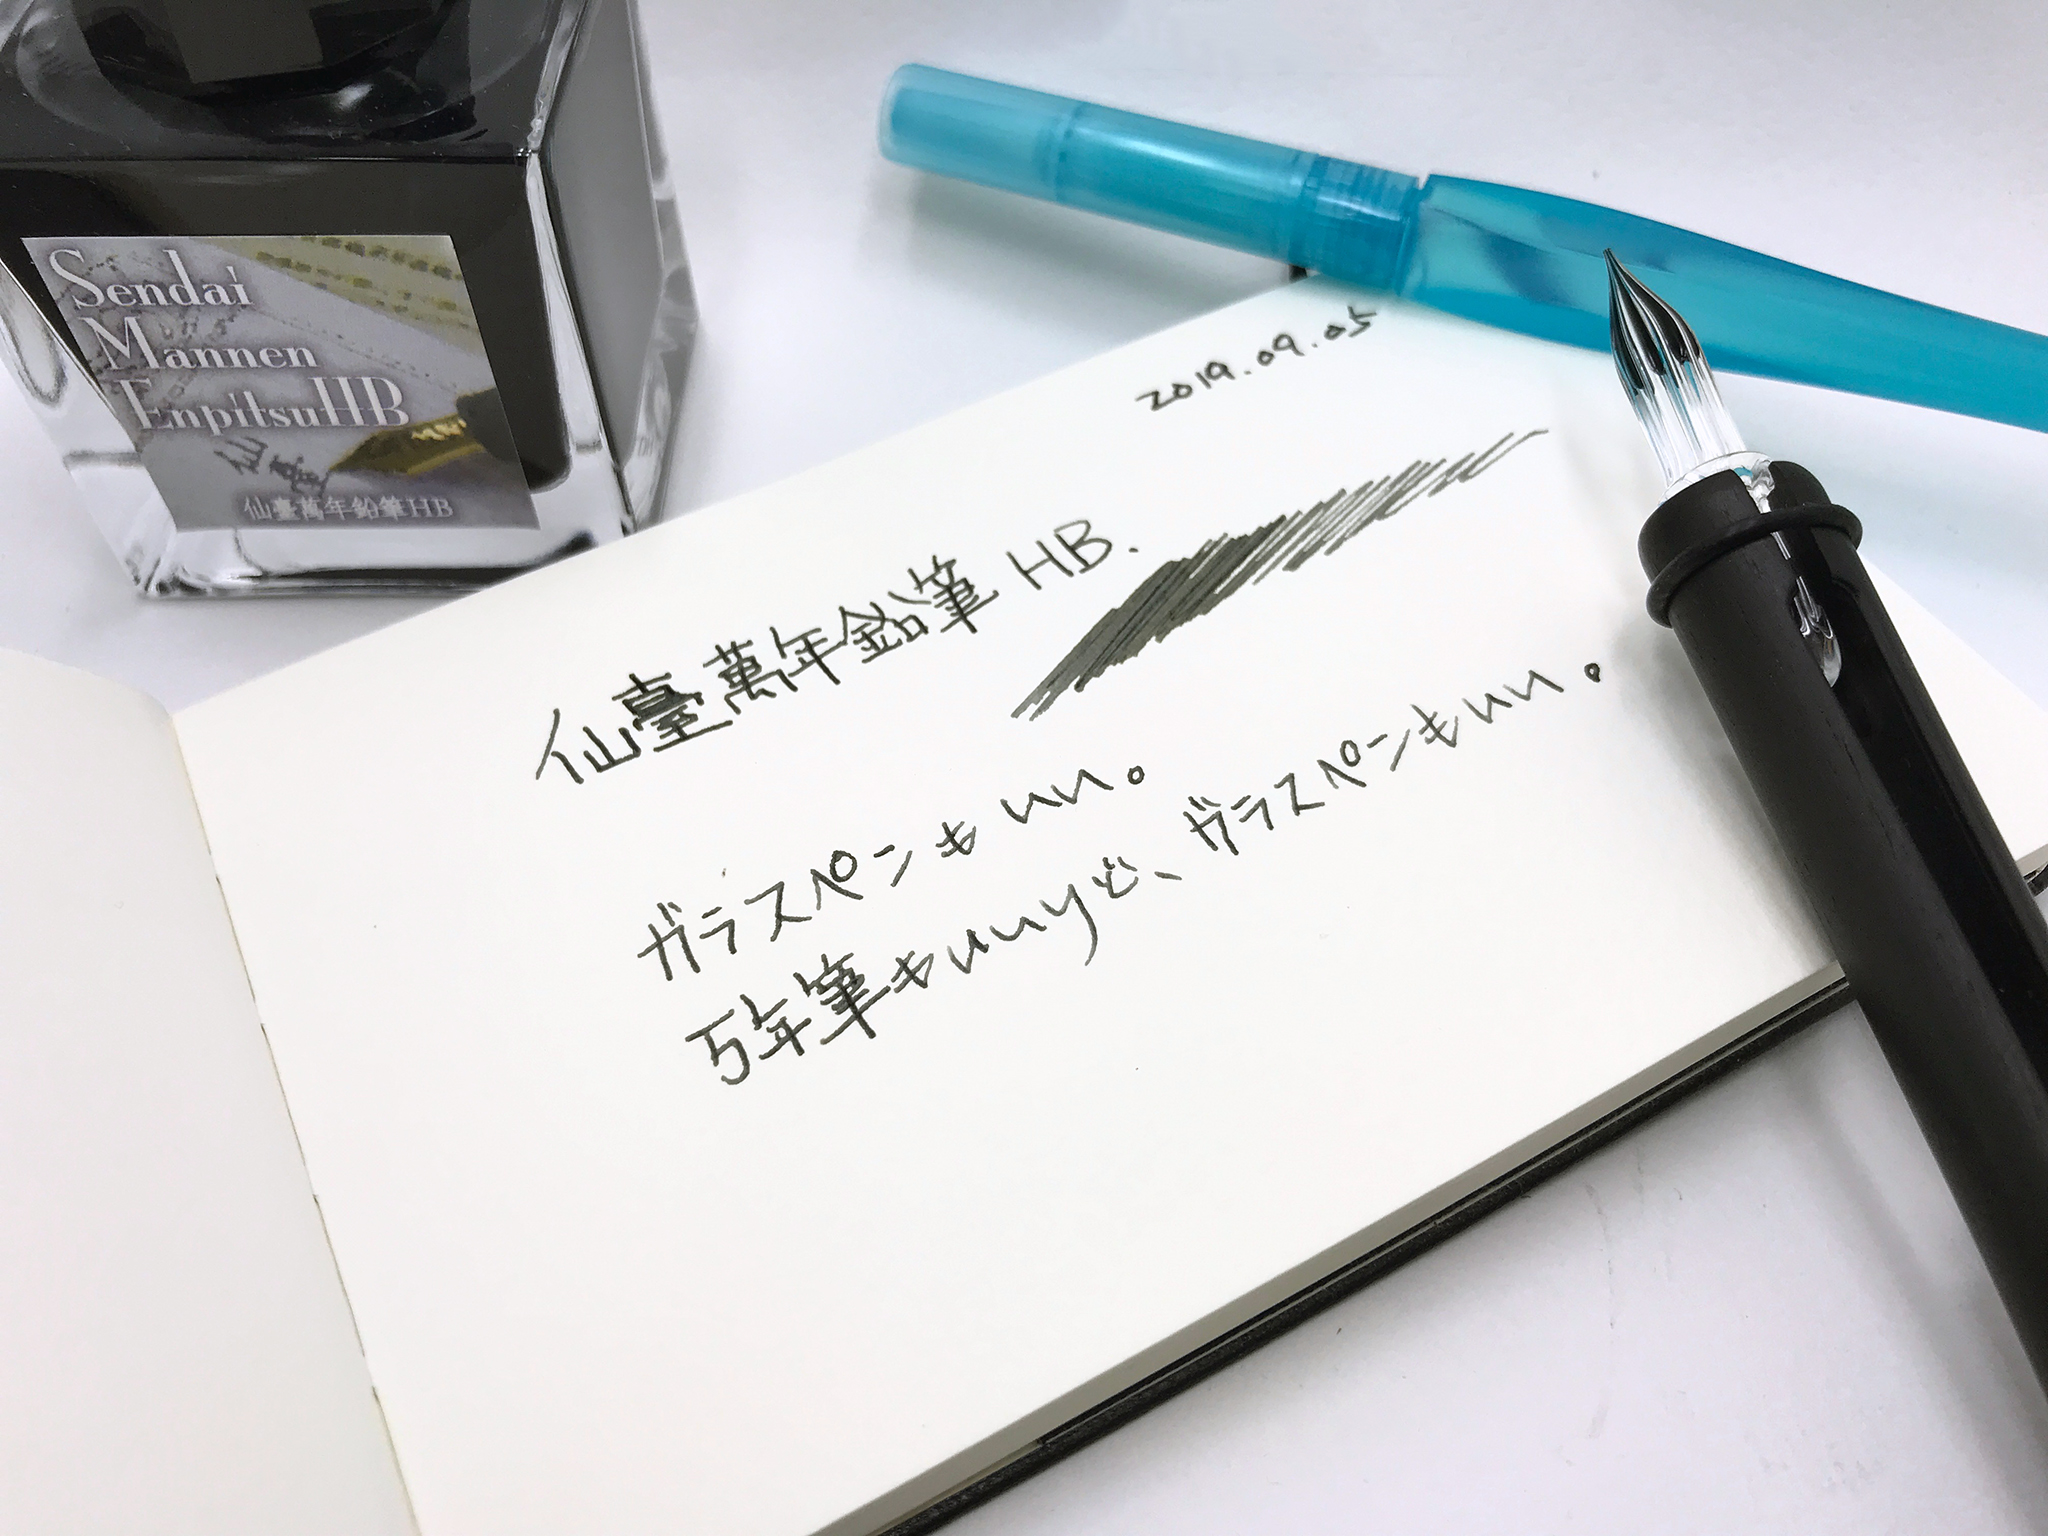 Sendai
Mannen
EnpitsuHB
仙臺
仙臺萬年鉛筆HB
2019.09.05
仙臺萬年鉛筆 HB.
ガラスペンもいい。
万年筆もいいけど、ガラスペンもいい。